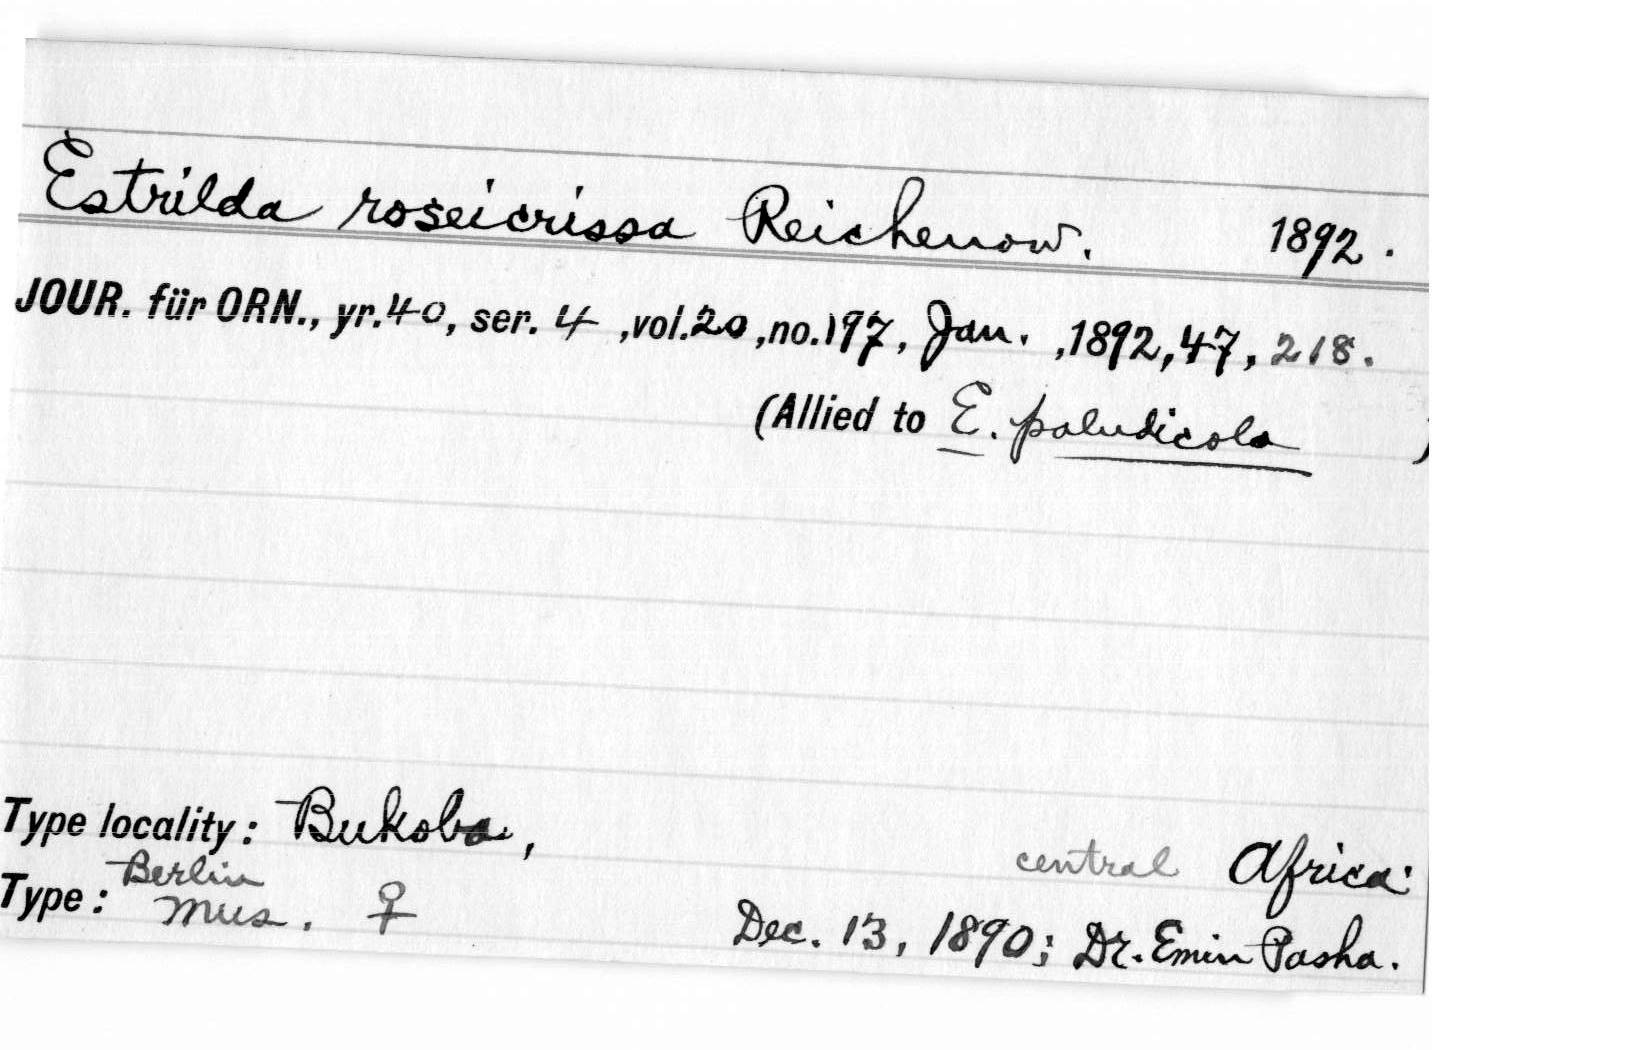 Estrilda roseicrissa Reichenow. 1892.
JOUR. für ORN., yr.40, ser. 4 ,vol.20 ,no.197, Jan. ,1892,47, 218.
(Allied to E. paludicola )
Type locality: Bukoba, central Africa.
Type: Berlin Mus. ♀ Dec. 13, 1890; Dr. Emin Pasha.